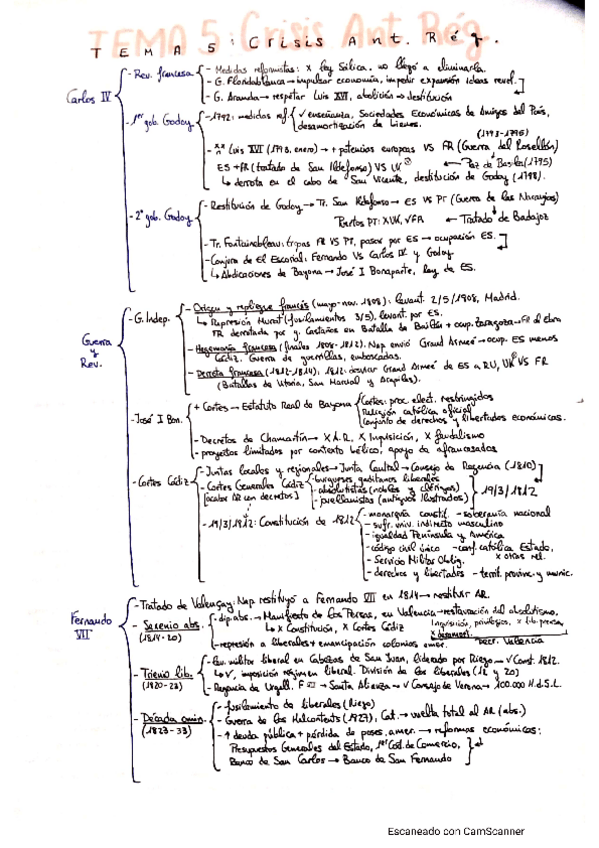 TEMA 5: Crisis Ant. Rég.
TEMA 5: Crisis Ant. Rég.
Carlos IV
- Rev. francesa
- Medidas reformistas: x Ley Sálica. no llegó a eliminarla.
- G. Floridablanca → impulsar economía, impedir expansión ideas revol.
- G. Aranda → respetar Luis XVI, abolición → destitución
- 1er gob. Godoy
- 1792: medidas ref. ✓ enseñanza, Sociedades Económicas de Amigos del País,
desamortización de bienes.
(1793-1795)
Luis XVI (1793, enero) → + potencias europeas VS FR (Guerra del Rosellón)
ES + FR (tratado de San Ildefonso) VS UK ← Paz de Basilea (1795)
↳ derrota en el cabo de San Vicente, destitución de Godoy (1798).
- 2º gob. Godoy
- Restitución de Godoy → Tr. San Ildefonso → ES VS PT (Guerra de las Naranjas)
Puertos PT: XUK, ✓FR ← Tratado de Badajoz
- Tr. Fontainebleau: tropas FR VS PT, pasar por ES → ocupación ES.
- Conjura de El Escorial: Fernando VS Carlos IV y Godoy
↳ Abdicaciones de Bayona → José I Bonaparte, Rey de ES.
Guerra
y
Rev.
- G. Indep.
- Origen y repliegue francés (mayo-nov. 1808): levant. 2/5/1808, Madrid.
↳ Represión Murat (fusilamientos 3/5), levant. por ES.
FR derrotada por g. Castaños en Batalla de Bailén + ocup. Zaragoza → FR al Ebro
- Hegemonía francesa (finales 1808-1812). Nap. envió Grand Armeé → ocup. ES menos
Cádiz. Guerra de guerrillas, emboscadas.
- Derrota francesa (1812-1814), 1812: desviar Grand Armeé de ES a RU, UK VS FR
(Batallas de Vitoria, San Marcial y Arapiles).
- José I Bon.
+ Cortes → Estatuto Real de Bayona
Cortes: proc. elect. restringidos
Religión católica oficial
Conjunto de derechos y libertades económicas.
- Decretos de Chamartín → X A.R., X Inquisición, X feudalismo
- proyectos limitados por contexto bélico, apoyo de afrancesados
- Cortes Cádiz
- Juntas locales y regionales → Junta Central → Consejo de Regencia (1810)
- Cortes Generales Cádiz
- burgueses gaditanos liberales
- absolutistas (nobles y clérigos)
- jovellanistas (antiguos ilustrados)
19/3/1812
- 19/3/1812: Constitución de 1812
- monarquía constit. - soberanía nacional
- sufr. univ. indirecto masculino
- igualdad Península y América
- código civil único - conf. católica Estado,
x otras rel.
- Servicio Militar Oblig.
- derechos y libertades - territ. provinc. y munic.
Fernando
VII
- Tratado de Valençay: Nap. restituyó a Fernando VII en 1814 → restituir AR.
- Sexenio abs.
(1814-20)
- dip. abs. → Manifiesto de los Persas, en Valencia → restauración del absolutismo,
↳ x Constitución, x Cortes Cádiz
Inquisición, privilegios, x lib. prensa,
x desamort.
Decr. Valencia
- represión a liberales + emancipación colonias amer.
- Trienio lib.
(1820-23)
- Lev. militar liberal en Cabezas de San Juan, liderado por Riego → ✓ Const. 1812.
↳ ✓, imposición régimen liberal. División de los liberales (12 y 20)
- Regencia de Urgell. F VII → Santa Alianza → ✓ Consejo de Verona → 100.000 H.d.S.L.
- Década omin.
(1823-33)
- fusilamiento de liberales (Riego)
- Guerra de los Malcontents (1927), Cat. → vuelta total al AR (abs.)
- ↑ deuda pública + pérdida de poses. amer. → reformas económicas:
Presupuestos Generales del Estado, 1er Cód. de Comercio,
Banco de San Carlos → Banco de San Fernando
Escaneado con CamScanner